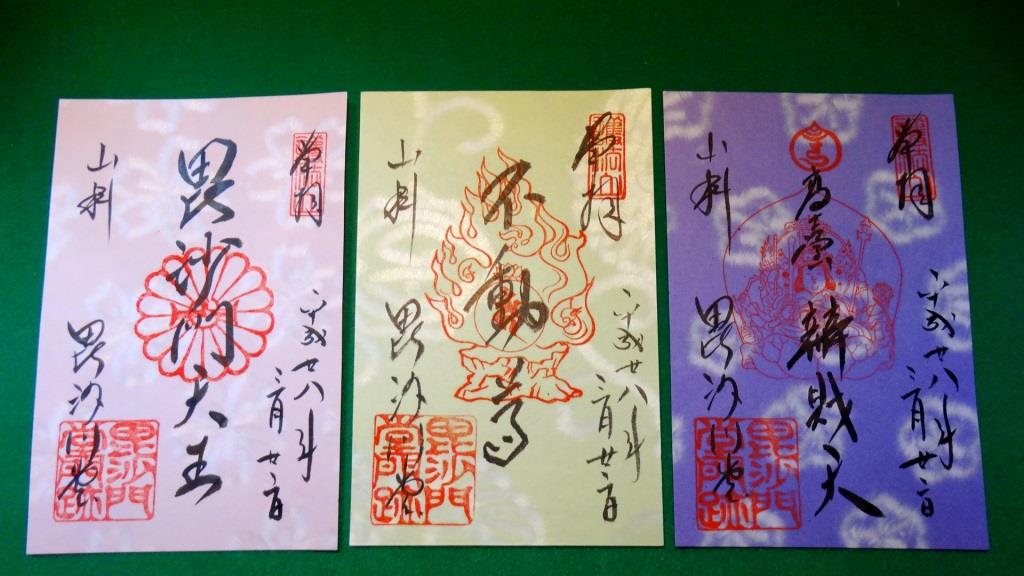 奉拝
平成廿八年
毘沙門天王
山科
毘沙門堂
毘沙門
堂門跡
奉拝
平成廿八年
不動尊
山科
毘沙門堂
毘沙門
堂門跡
奉拝
平成廿八年
高臺辨財天
山科
毘沙門堂
毘沙門
堂門跡